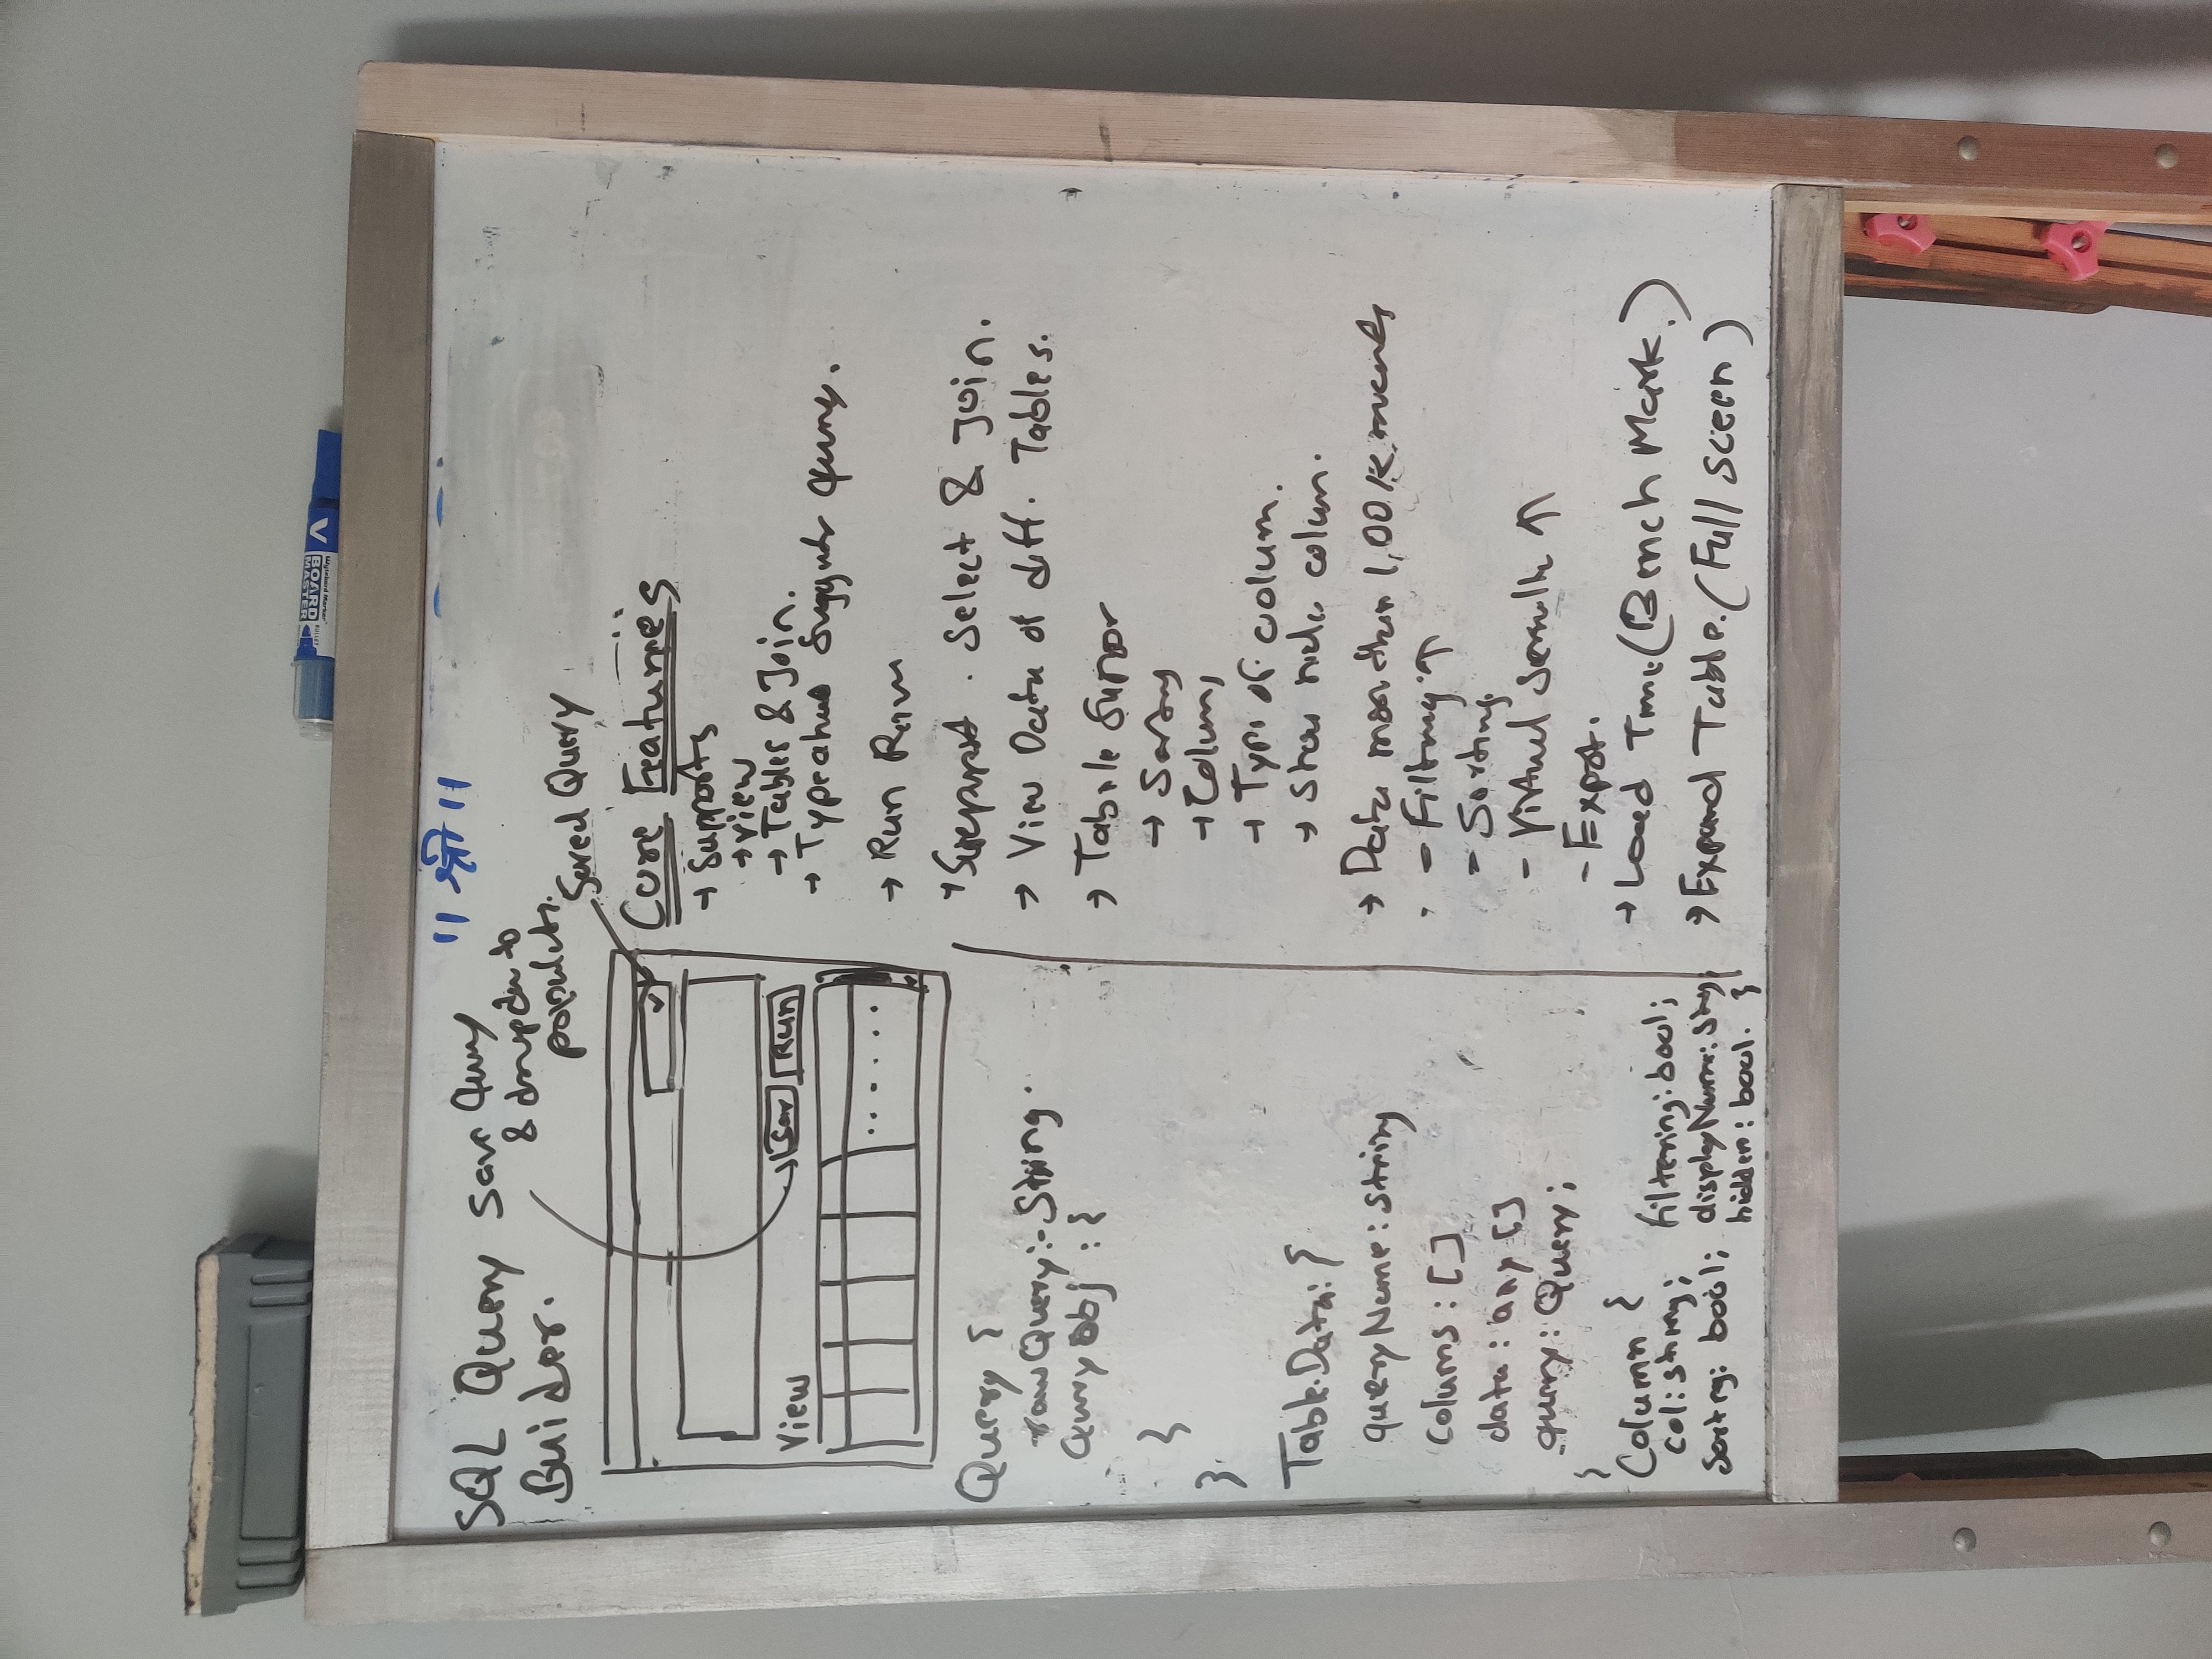 BOARD
MASTER
BULLET
Wyteboard Marker
V
॥ श्री ॥
SQL Query
Buider.
Save Query
& dropdn to
populate.
Saved Query
View
Sav
Run
Query {
rawQuery:- String.
Query Obj : {
}
}
Table.Data: {
queryName: string
colums : []
data : any []
query: Query;
}
Column {
col: string;
sorting: bool;
filtering: bool;
displayName: string;
hidden: bool. }
Core Features
→ Supports
→ view
→ Tables & Join.
→ Typeahead Query.
→ Run Raw
→ Support . Select & Join.
→ View Data of diff. Tables.
→ Table Suppor
→ Sorting
→ Colums
→ Type of colum.
→ Show hide colum.
→ Data more than 1,00 K records
- Filtring ↑
- Sorting.
- Virtual ↑
- Expot.
→ Load Time (Bench Mark.)
→ Expand Table. (Full Sceen)